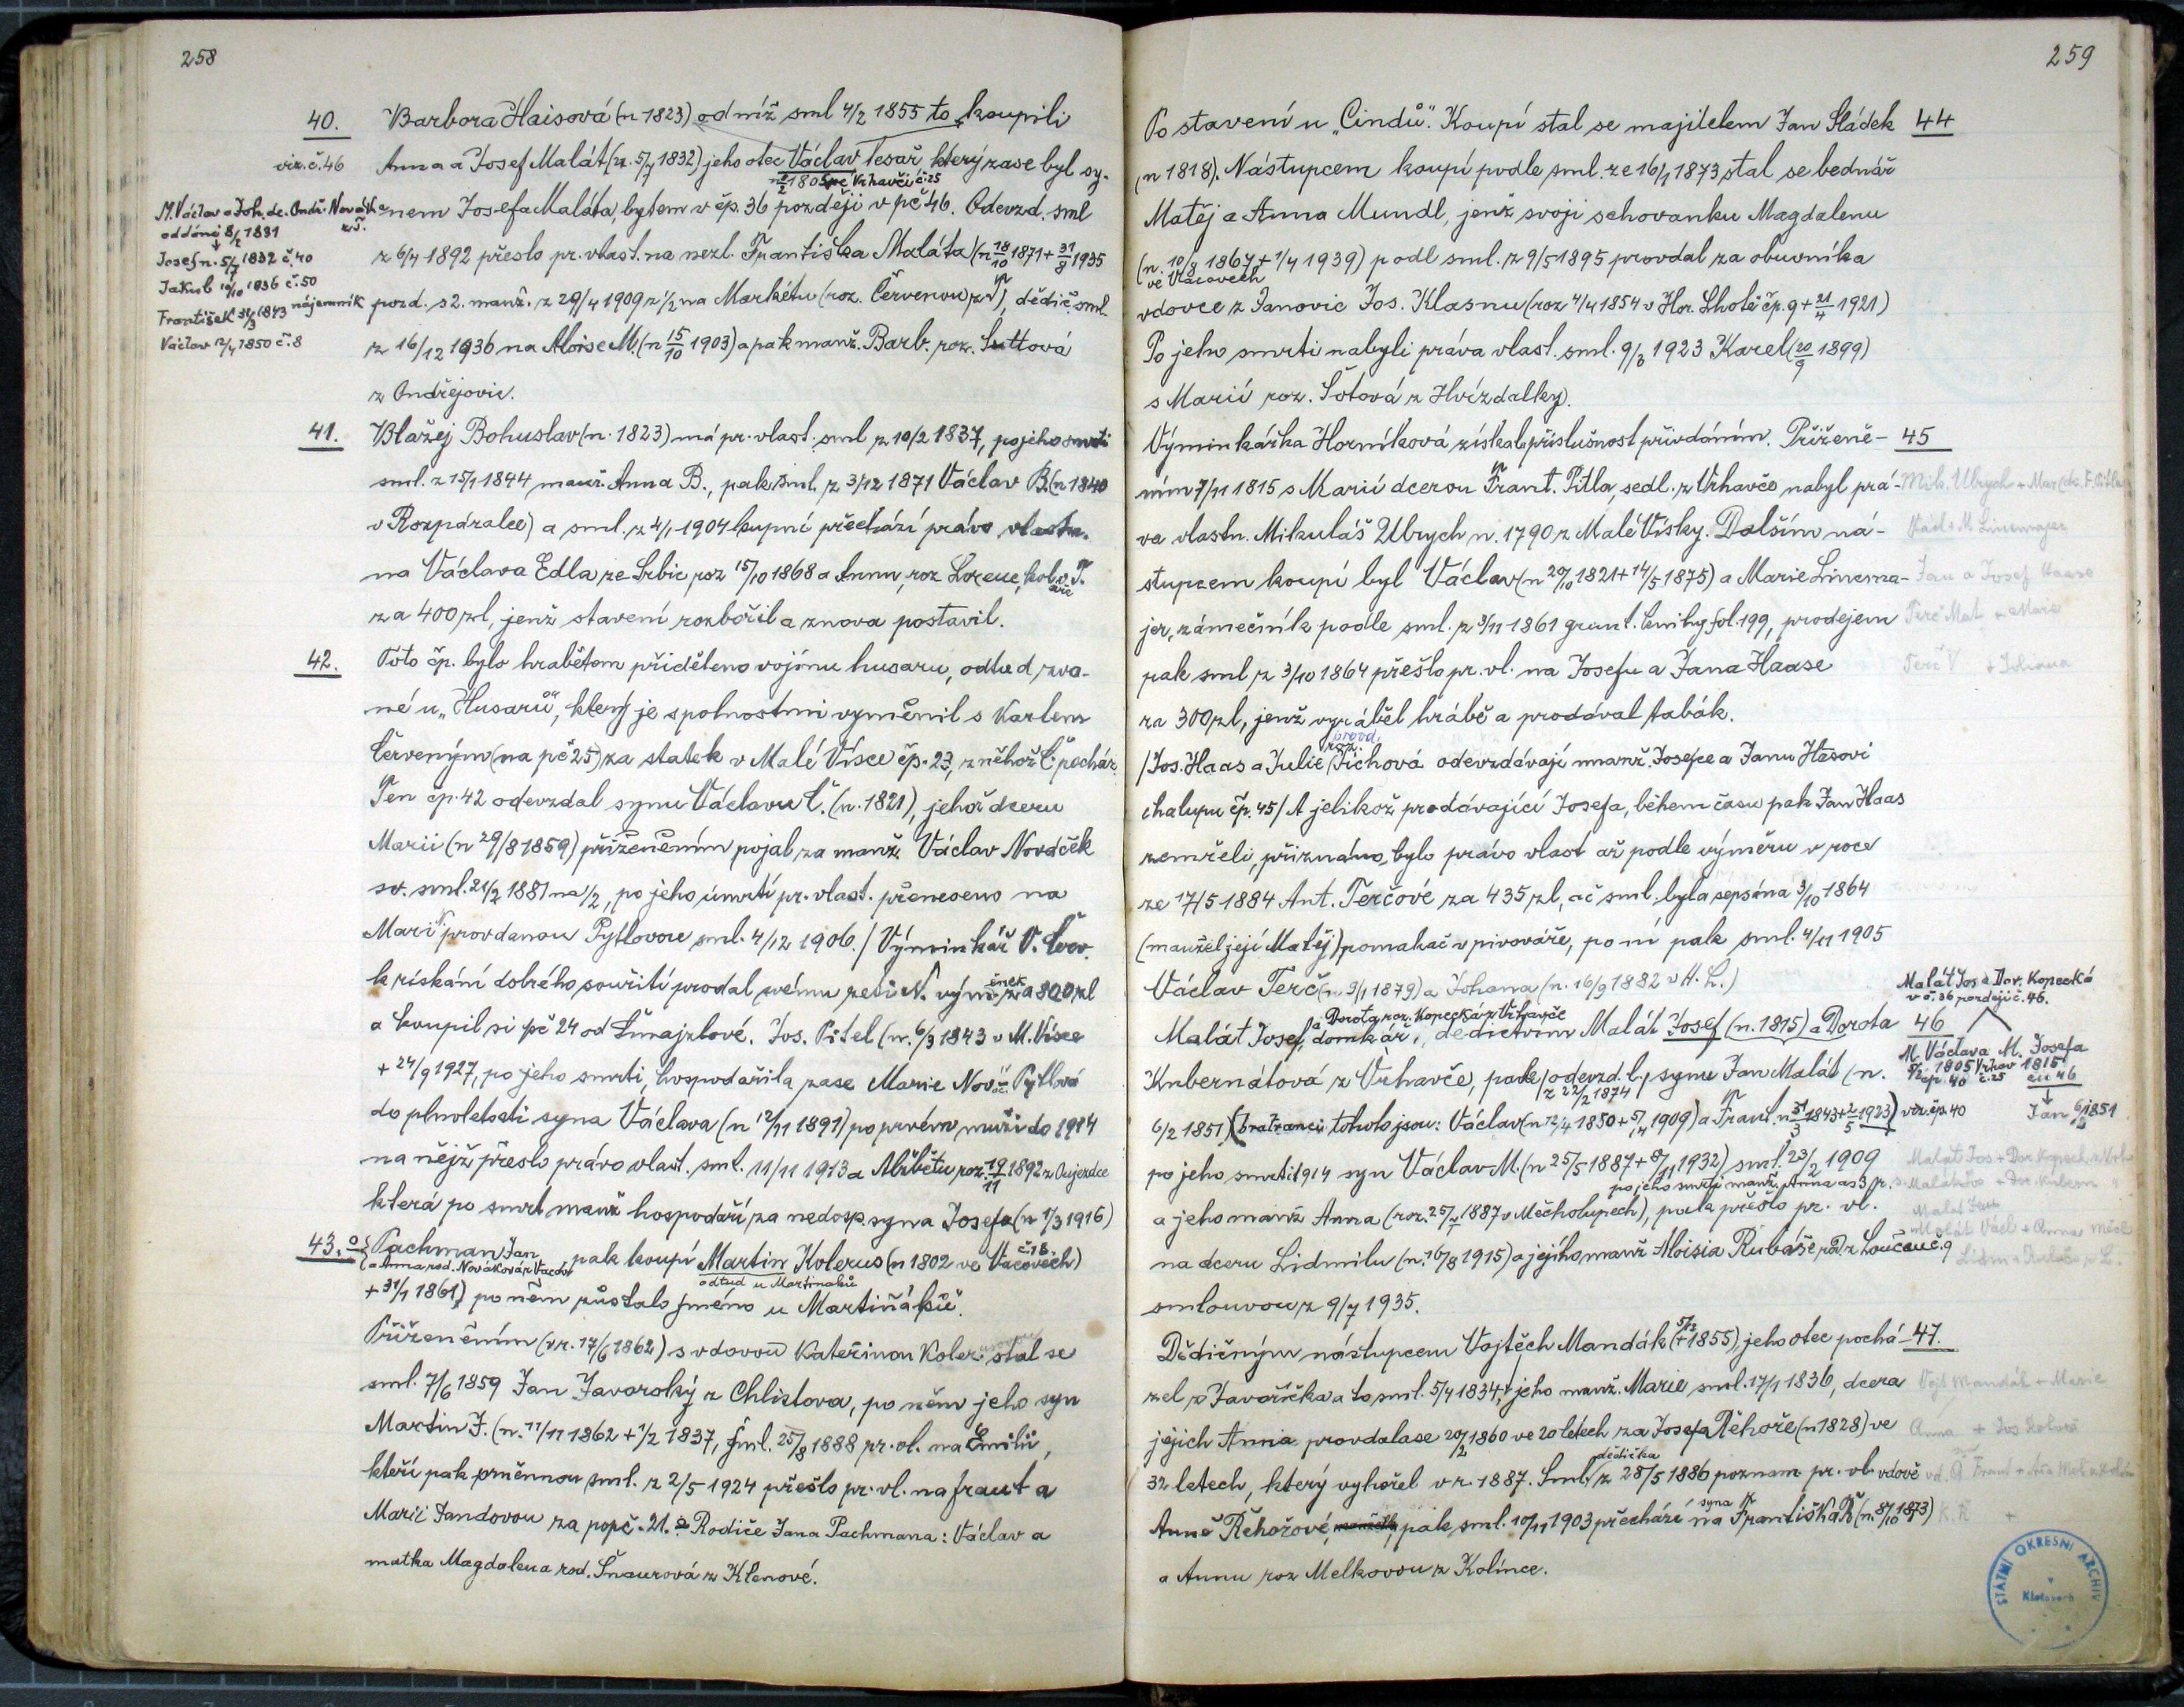 258
40. Barbora Haisová (n 1823) od níž sml 4/2 1855 to koupili
viz. č. 46 Anna a Josef Malát (n. 5/7 1832) jeho otec Václav Tesař, který zase byl sy-
n 2/2 1805 ve Vrhavči č. 25
nem Josefa Maláta, bytem v čp. 36 později v pč 46. Odevzd. sml
M. Václav a Joh. dc. Ondř. Nováka z Š.
oddáni 8/2 1831
Josef n. 5/7 1832 č. 40
Jakub 10/10 1836 č. 50
František 31/3 1843 nájemník
Václav 12/4 1850 č. 8
z 6/4 1892 přešlo pr. vlast. na nezl. Františka Maláta (n 18/10 1871 + 31/8 1935
pozd. s 2. manž. z 29/4 1909 z 1/2 na Markétu (roz. Červenou z V), dědič. sml.
z 16/12 1936 na Aloise M. (n 15/10 1903) a pak manž. Barb. roz. Suttová
z Ondřejovic.
41. Blažej Bohuslav (n. 1823) má pr. vlast. sml z 10/2 1837, po jeho smrti
sml. z 15/1 1844 manž. Anna B., pak sml. z 3/12 1871 Václav B. (n 1840
v Rozpáralce) a sml. z 4/1 1904 kupní přechází právo vlastn.
na Václava Edla ze Srbic roz 15/10 1868 a Annu, roz Lorenc, koláře v T.
za 400 zl, jenž stavení rozbořil a znova postavil.
42. Toto čp. bylo hrabětem přiděleno vojínu husaru, odtud zva-
né u „Husarů", který je spolnostmi vyměnil s Karlem
Červeným (na pč 25) za statek v Malé Vísce čp. 23, z něhož Č. pochází.
Ten čp. 42 odevzdal synu Václavu Č. (n. 1821), jehož dceru
Marii (n 29/8 1859) přiženěním pojal za manž. Václav Nováček
sv. sml. 21/2 1881 na 1/2, po jeho úmrtí pr. vlast. přeneseno na
Marii provdanou Pytlovou sml. 4/12 1906. / Výminkář V. Červ.
k získání dobrého soužití prodal svému zeti N. výměnek za 800 zl
a koupil si pč 24 od Šmajzlové. Jos. Pitel (n. 6/3 1843 v M. Vísce
+ 24/9 1927, po jeho smrti hospodařila zase Marie Nováč. Pytlová
do plnoletosti syna Václava (n 12/11 1891) po prvém muži do 1914
na nějž přešlo právo vlast. sml. 11/11 1913 a Alžbětu roz. 19/11 1892 z Oujezdce
která po smrt manž hospodaří za nedosp. syna Josefa (n 1/3 1916)
43. Pachman Jan pak koupí Martin Kolerus (n 1802 ve Vacovech) č. 18
a Anna rod. Nováková z Vacov odtud u Martinaků
+ 31/1 1861) po něm zůstalo jméno u „Martiňáků".
Přiženěním (v r. 17/6 1862) s vdovou Kateřinou Koler. stal se
sml. 7/6 1859 Jan Javorský z Chlistova, po něm jeho syn
Martin J. (n. 11/11 1862 + 1/2 1837, sml. 25/8 1888 pr. vl. na Emilii,
kteří pak směnnou sml. z 2/5 1924 přešlo pr. vl. na frant a
Marii Jandovou za popč. 21. Rodiče Jana Pachmana: Václav a
matka Magdalena rod. Šnaurová z Klenové.
259
Po stavení u „Cindů". Koupí stal se majitelem Jan Sládek 44
(n 1818). Nástupcem koupí podle sml. ze 16/1 1873 stal se bednář
Matěj a Anna Mundl, jenž svoji schovanku Magdalenu
(n. 10/8 1867 + 1/4 1939) podl sml. z 9/5 1895 provdal za obuvníka
ve Vacovech
vdovce z Janovic Jos. Klasnu (roz 4/4 1854 v Hor. Lhotě čp. 9 + 21/4 1921)
Po jeho smrti nabyli práva vlast. sml. 9/3 1923 Karel (20/9 1899)
s Marií roz. Šotová z Hvízdalky.
Výminkářka Horníková získala příslušnost přivdáním. Přiženě- 45
ním 7/11 1815 s Marií dcerou Frant. Pitla, sedl. z Vrhavče nabyl prá-
va vlastn. Mikuláš Ulrych n. 1790 z Malé Vísky. Dalším ná-
stupcem koupí byl Václav (n 20/10 1821 + 14/5 1875) a Marie Linema-
jer, zámečník podle sml. z 3/11 1861 grunt. knihy fol. 199, prodejem
pak sml z 3/10 1864 přešlo pr. vl. na Josefu a Jana Haase
za 300 zl, jenž vyráběl hrábě a prodával tabák.
provd.
/ Jos. Haas a Julie roz. Tichová odevzdávají manž. Josefce a Janu Hasovi
chalupu čp. 45 / A jelikož prodávající Josefa, během času pak Jan Haas
zemřeli, přiznáno bylo právo vlast až podle výměru v roce
ze 17/5 1884 Ant. Terčové za 435 zl, ač sml. byla sepsána 3/10 1864
(manžel její Matěj) pomahač v pivováře, po ní pak sml. 4/11 1905
Václav Terč (n. 9/1 1879) a Johana (n. 16/9 1882 v H. L.)
Malát Jos a Dor. Kopecká
v č. 36 později č. 46.
a Dorota roz. Kopecká z Vrhavče
Malát Josef, domkář, dedictvím Malát Josef (n. 1815) a Dorota 46
M Václava M. Josefa
2/2 1805 Vrhav 1815
čp. 40 č. 25 čís 46
Jan 6/2 1851
Knbernátová z Vrhavče, pak / odevzd. l. / synu Jan Malát (n.
/z 22/2 1874
6/2 1851) (bratranci tohoto jsou: Václav (n 12/4 1850 + 5/4 1909) a Frant. n 31/3 1843 + 2/5 1923) viz. čp. 40
po jeho smrti 1914 syn Václav M. (n 25/5 1887 + 8/11 1932) sml. 23/2 1909
po jeho smrti manž. Anna as 3 p.
a jeho manž Anna (roz. 25/7 1887 v Měcholupech), pak přešlo pr. vl.
na dceru Lidmilu (n. 16/8 1915) a jejího manž Aloisia Rubáše, rod z Loučan č. 9
smlouvou z 9/7 1935.
Dědičným nástupcem Vojtěch Mandák (+ 5/3 1855), jeho otec pochá- 47.
zel z Javoříčka a to sml. 5/4 1834 + jeho manž. Marie sml. 17/1 1836, dcera
jejich Anna provdala se 20/2 1860 ve 20 letech za Josefa Řehoře (n 1828) ve
dědička
32 letech, který vyhořel v r. 1887. Sml. z 28/5 1886 poznam. pr. vl. vdově
Anně Řehořové, pak sml. 10/11 1903 přechází na syna Františka Ř (n. 8/10 1873)
a Annu roz Melkovou z Kolince.
STÁTNÍ OKRESNÍ ARCHIV
v
Klatovech